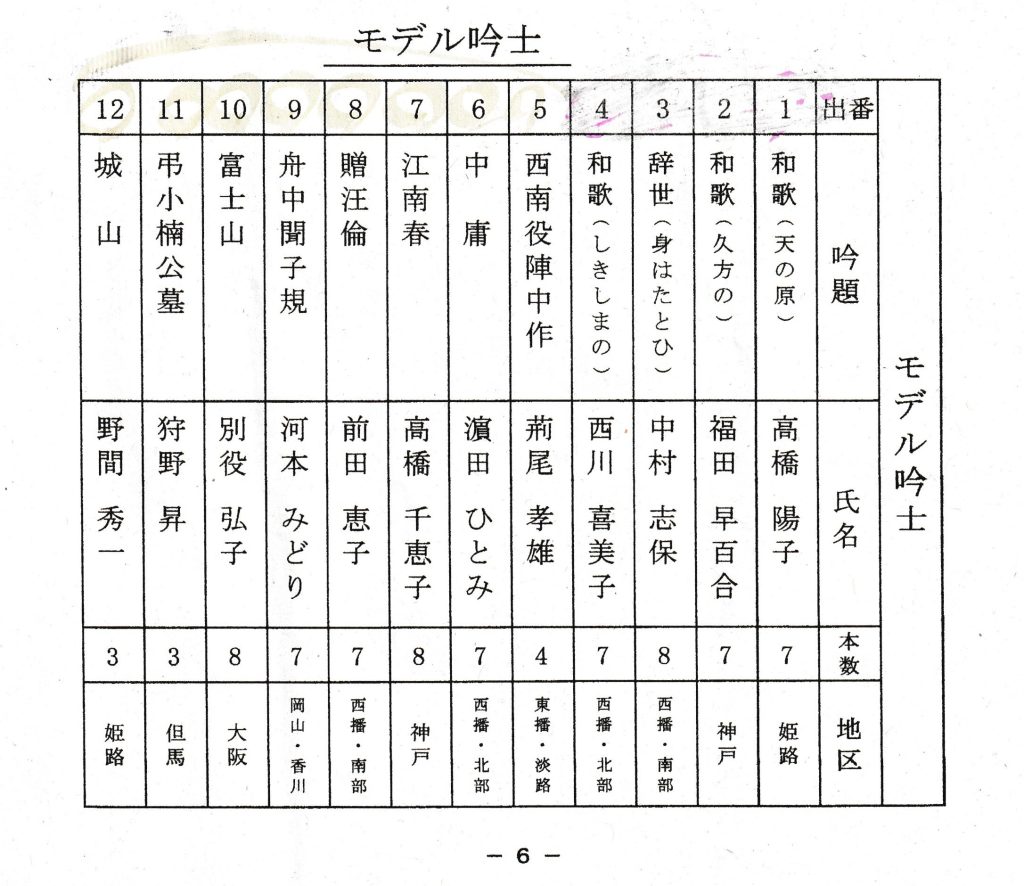 モデル吟士
モデル吟士
出番 吟題 氏名 本数 地区
1 和歌（天の原） 高橋 陽子 7 姫路
2 和歌（久方の） 福田 早百合 7 神戸
3 辞世（身はたとひ） 中村 志保 8 西播・南部
4 和歌（しきしまの） 西川 喜美子 7 西播・北部
5 西南役陣中作 荊尾 孝雄 4 東播・淡路
6 中庸 濵田 ひとみ 7 西播・北部
7 江南春 高橋 千恵子 8 神戸
8 贈汪倫 前田 恵子 7 西播・南部
9 舟中聞子規 河本 みどり 7 岡山・香川
10 富士山 別役 弘子 8 大阪
11 弔小楠公墓 狩野 昇 3 但馬
12 城山 野間 秀一 3 姫路
－ 6 －